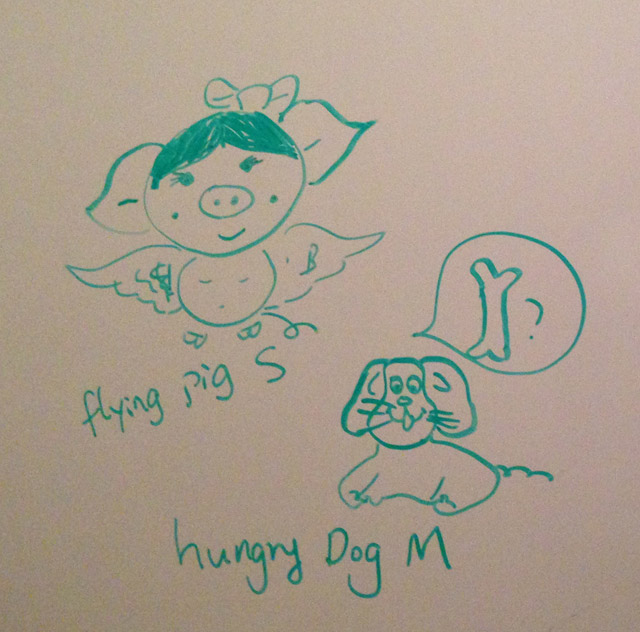 B
?
flying pig S
hungry Dog M